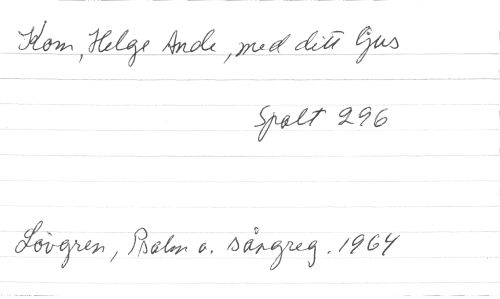 Kom, Helge Ande, med ditt ljus
Spalt 296
Lövgren, Psalm o. sångreg. 1964